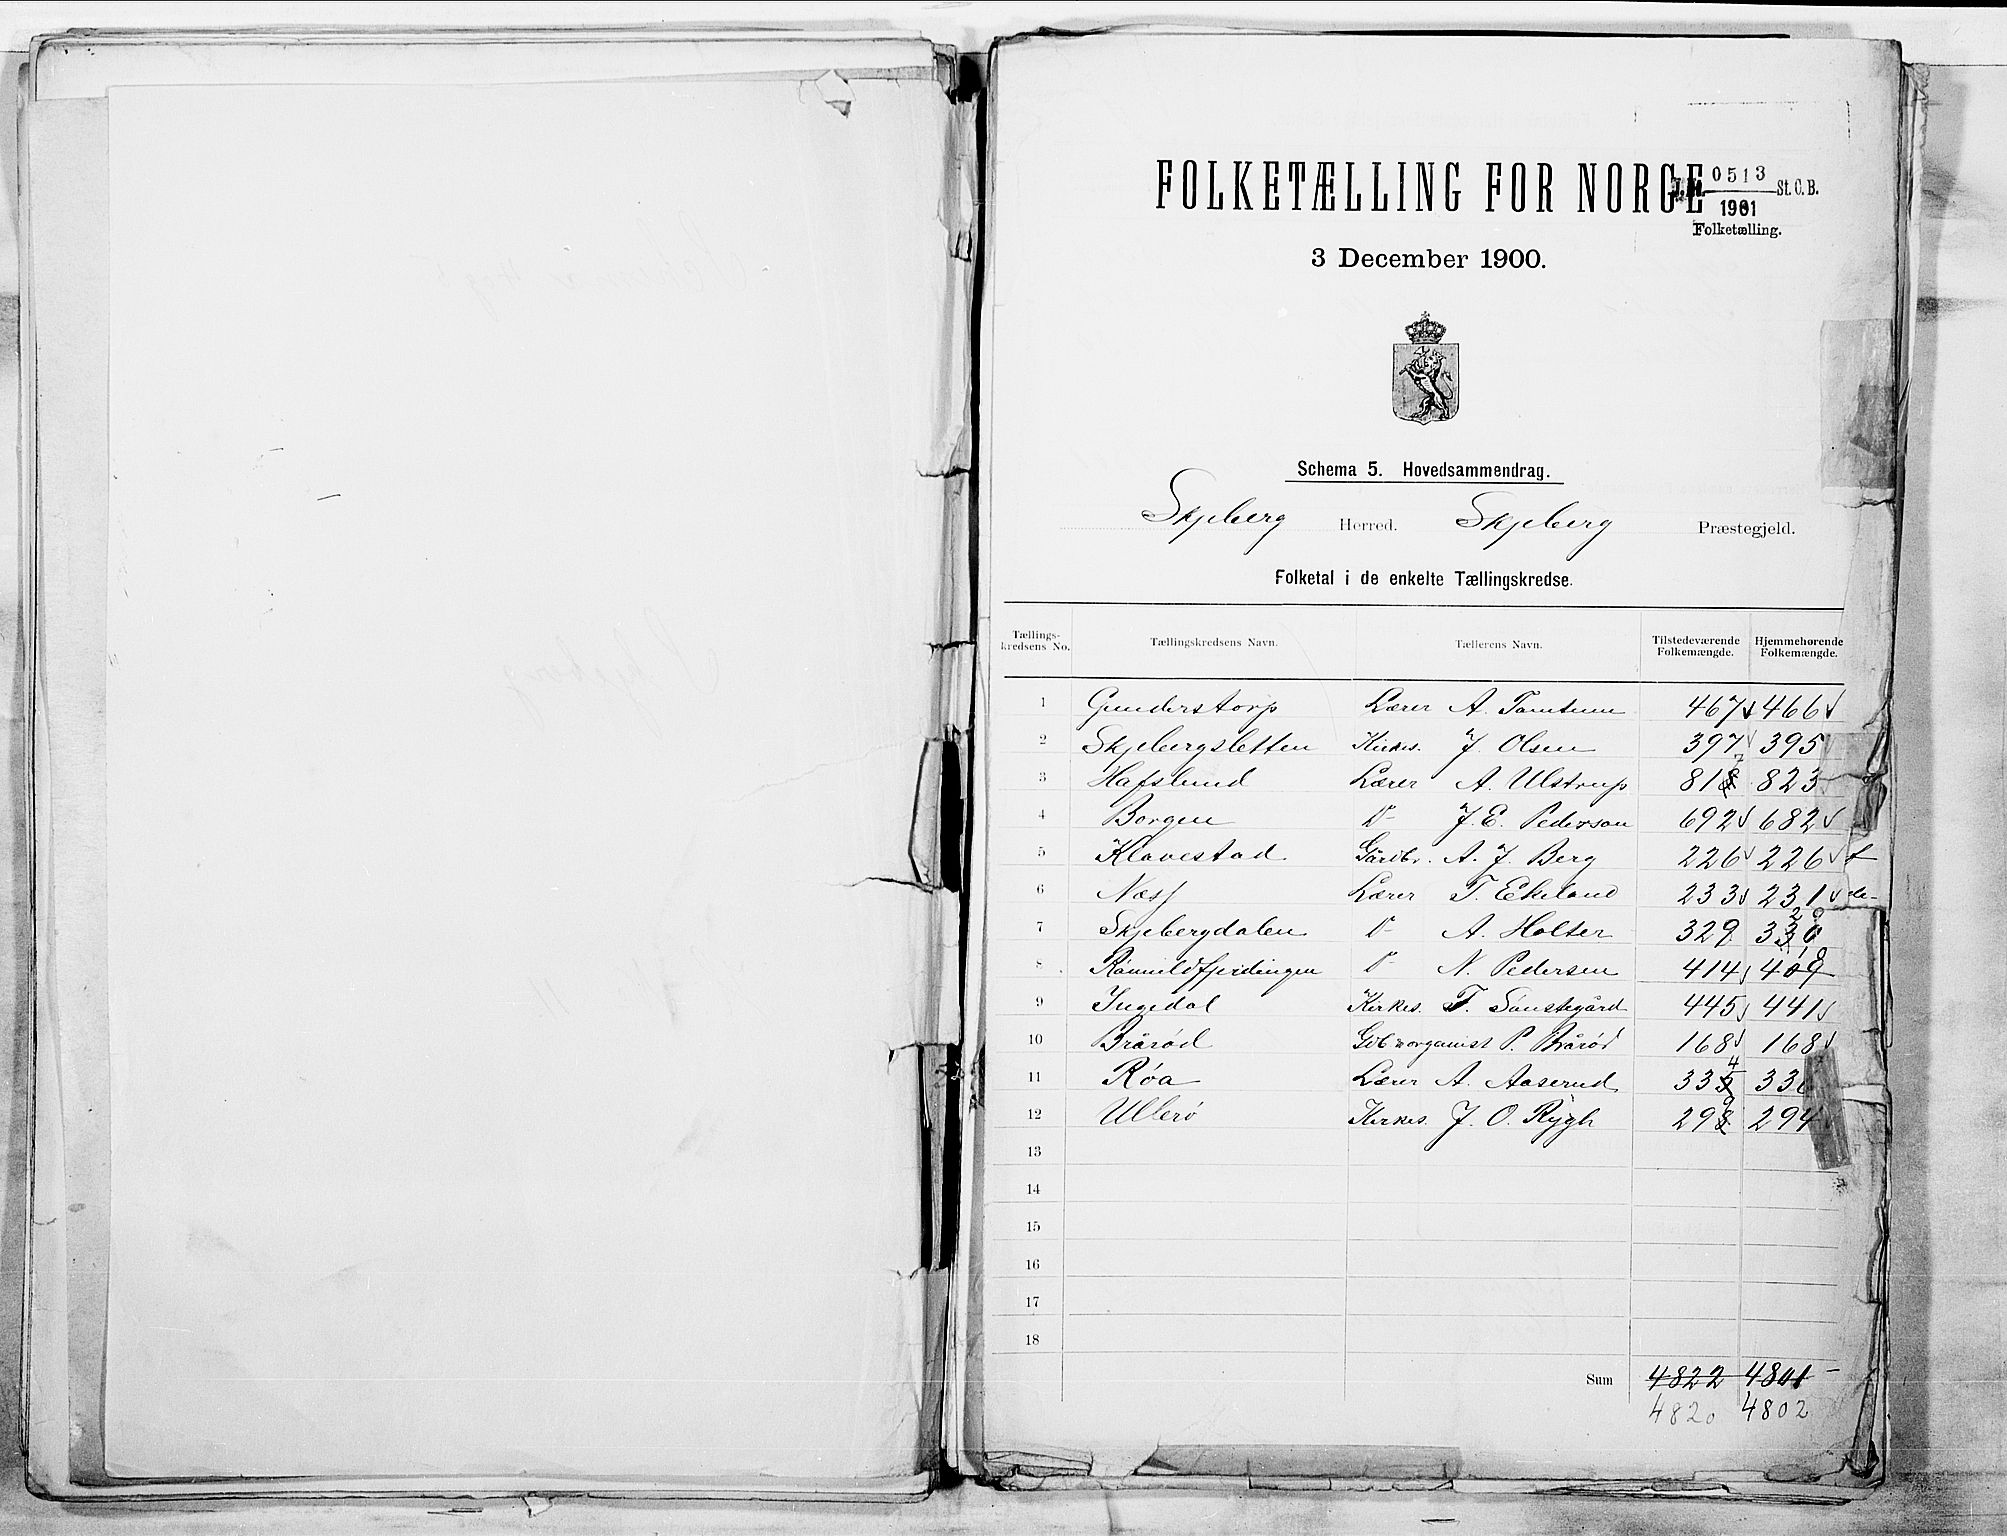 FOLKETÆLLING FOR NORGE
0513
1901
St. C. B.
Folketælling.
3 December 1900.
Schema 5. Hovedsammendrag.
Skjeberg Herred. Skjeberg Præstegjeld.
Folketal i de enkelte Tællingskredse.
Tællings-kredsens No. Tællingskredsens Navn. Tællerens Navn. Tilstedeværende Folkemængde. Hjemmehørende Folkemængde.
1 Gunderstorp Lærer A. Tomtum 467 466
2 Skjebergsletten Kirkes. J. Olsen 397 395
3 Hafslund Lærer A. Ulstrup 817 823
4 Borgen D- J. E. Pederson 692 682
5 Klavestad Gårdbr. A. J. Berg 226 226
6 Næss Lærer T. Ekeland 233 231
7 Skjebergdalen D- A. Holter 329 329
8 D- N. Pedersen 414
9 Ingedal Kirkes. T. Sønstegård 445 441
10 Brårød Gdb & organist P. Brårød 168 168
11 Røa Lærer A. Aaserud 334
12 Ullerø Kirkes. J. O. Rygh 294
13
14
15
16
17
18
Sum 4822 4801
4820 4802